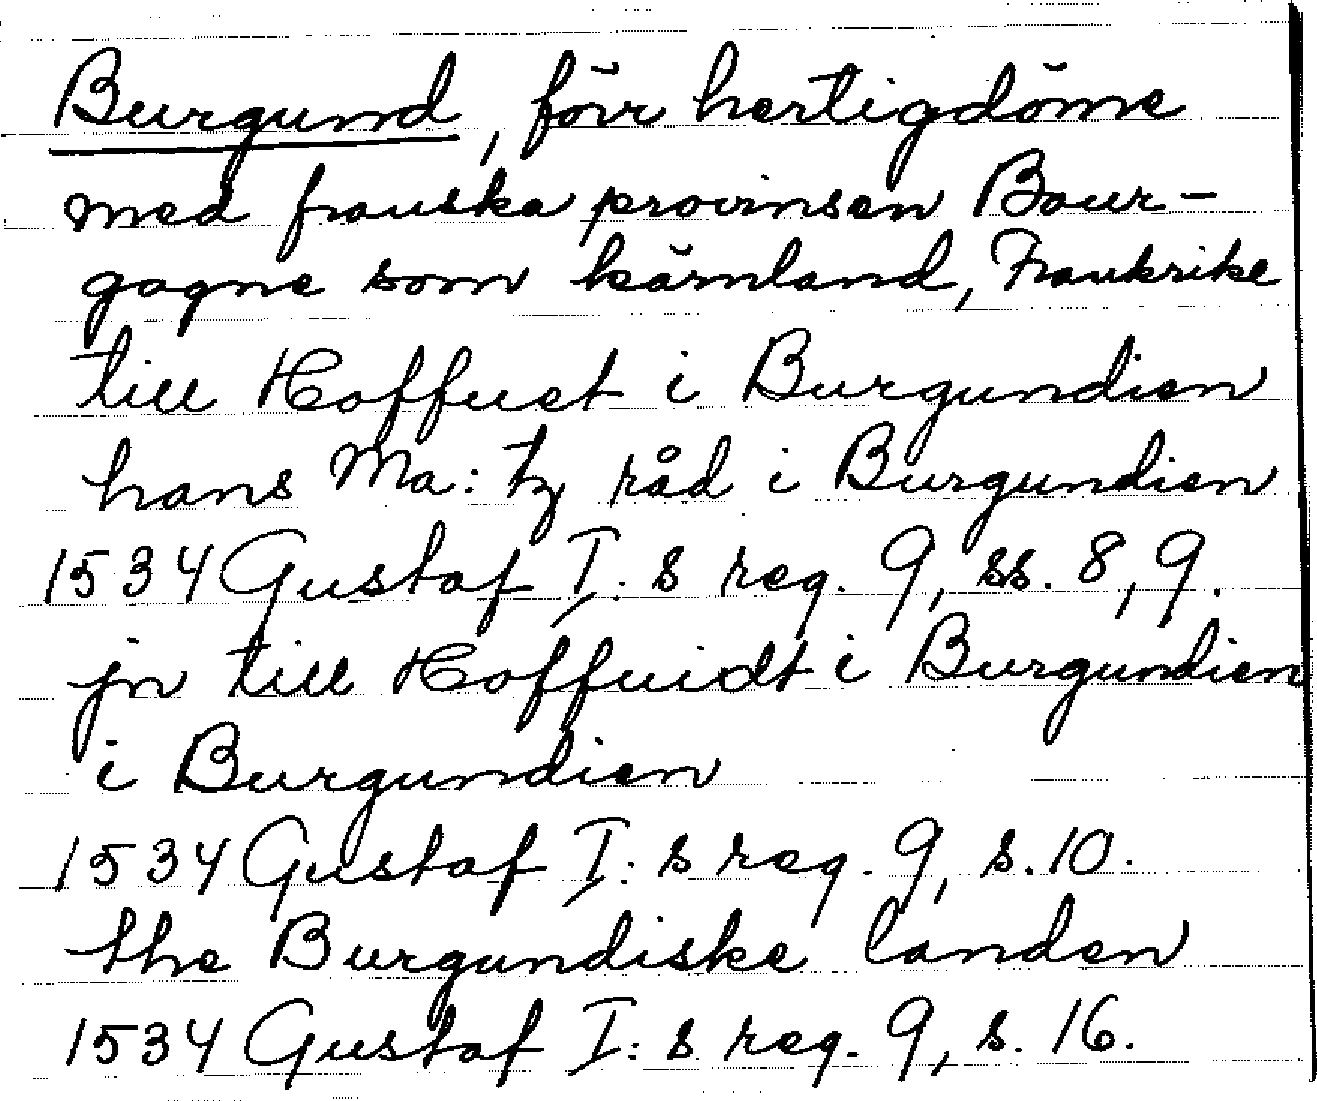 Burgund, förr hertigdöme
med franska provinsen Bour-
gogne som kärnland, Frankrike
till Hoffuet i Burgundien
hans Ma: tz råd i Burgundien
1534 Gustaf I: s reg. 9, ss. 8, 9.
jn till Hoffuidt i Burgundien
i Burgundien
1534 Gustaf I: s reg. 9, s. 10.
the Burgundiske landen
1534 Gustaf I: s reg. 9, s. 16.